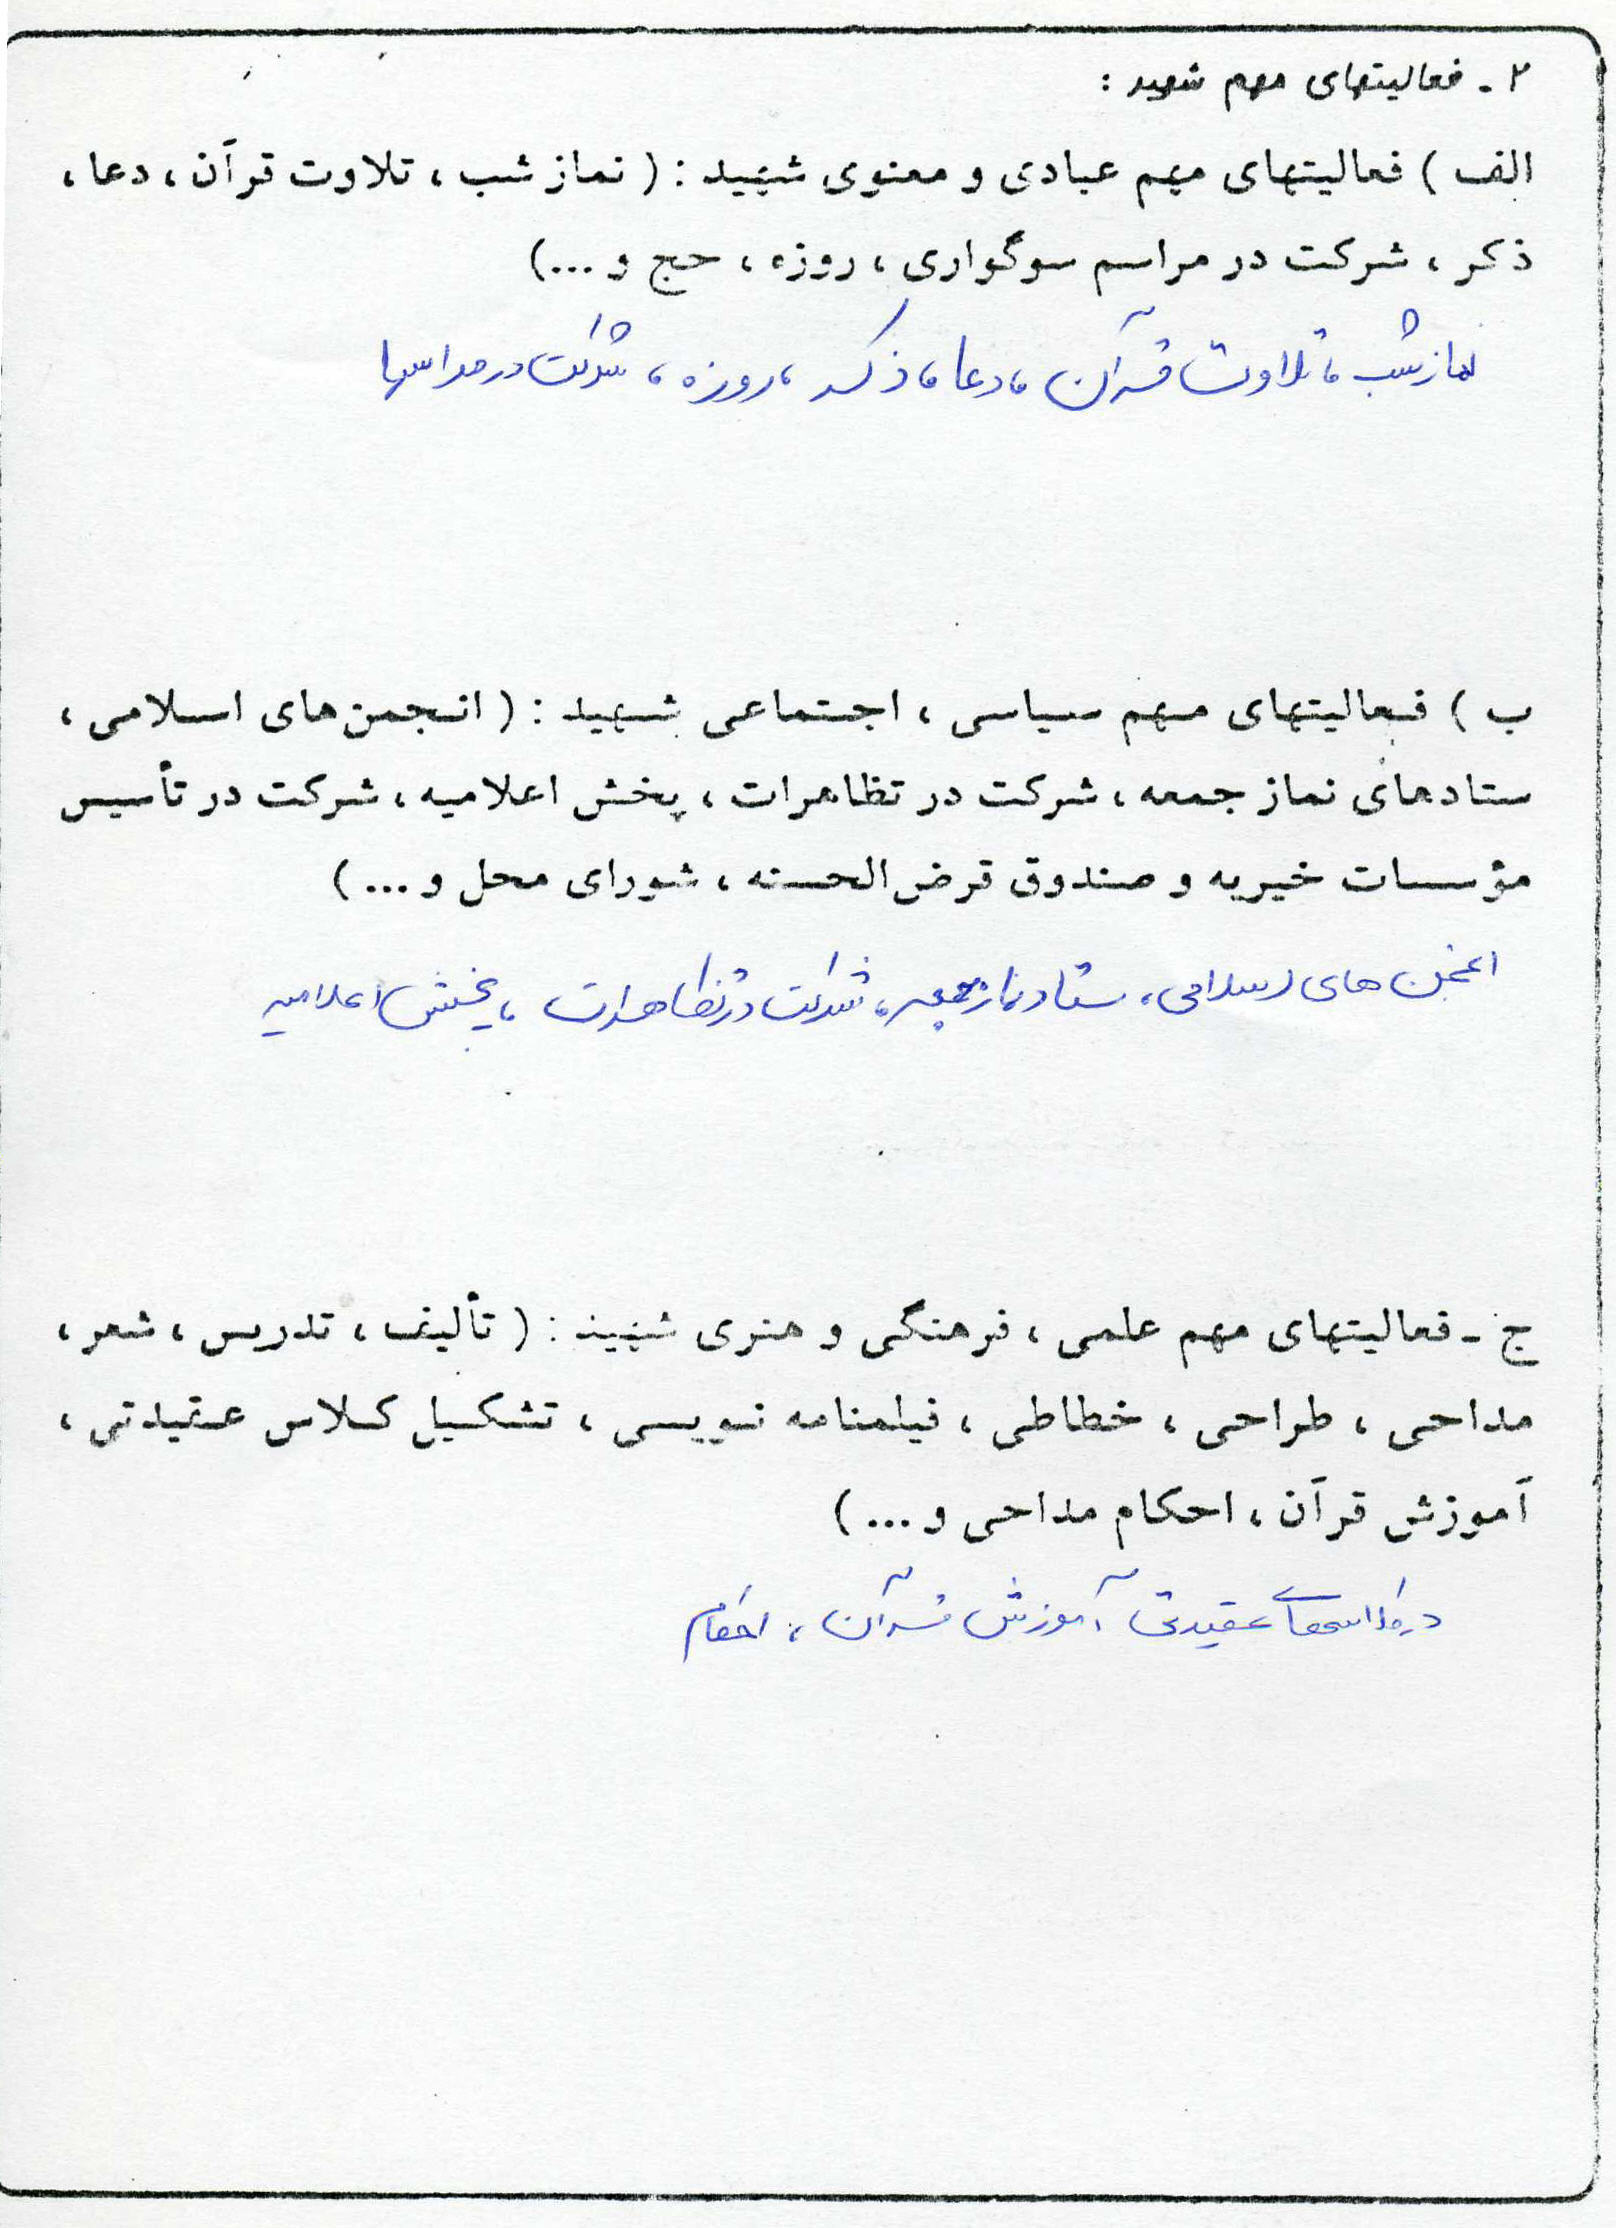 ۲ - فعالیتهای مهم شهید :
الف ) فعالیتهای مهم عبادی و معنوی شهید : ( نماز شب ، تلاوت قرآن ، دعا ،
ذکر ، شرکت در مراسم سوگواری ، روزه ، حج و ...)
نماز شب ، تلاوت قرآن ، دعا ، ذکر ، روزه ، شرکت در مراسمها
ب ) فعالیتهای مهم سیاسی ، اجتماعی شهید : ( انجمن های اسلامی ،
ستادهای نماز جمعه ، شرکت در تظاهرات ، پخش اعلامیه ، شرکت در تأسیس
مؤسسات خیریه و صندوق قرض الحسنه ، شورای محل و ... )
انجمن های اسلامی ، ستاد نماز جمعه ، شرکت در تظاهرات ، پخش اعلامیه
ج - فعالیتهای مهم علمی ، فرهنگی و هنری شهید : ( تألیف ، تدریس ، شعر ،
مداحی ، طراحی ، خطاطی ، فیلمنامه نویسی ، تشکیل کلاس عقیدتی ،
آموزش قرآن ، احکام مداحی و ... )
عقیدتی آموزش قرآن ، احکام